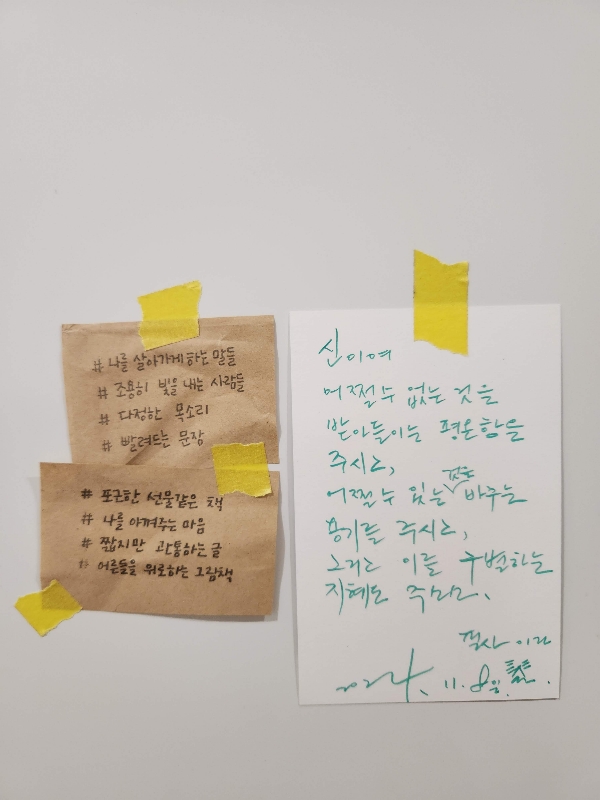 # 나를 살아가게 하는 말들
# 조용히 빛을 내는 사람들
# 다정한 목소리
# 빨려드는 문장
# 포근한 선물같은 책
# 나를 아껴주는 마음
# 짧지만 관통하는 글
# 어른들을 위로하는 그림책
신이여
어쩔수 없는 것을
받아들이는 평온함을
주시고,
어쩔수 있는 것은 바꾸는
용기를 주시고,
그리고 이를 구별하는
지혜도 주소서.
필사 이라
2024. 11. 8일.